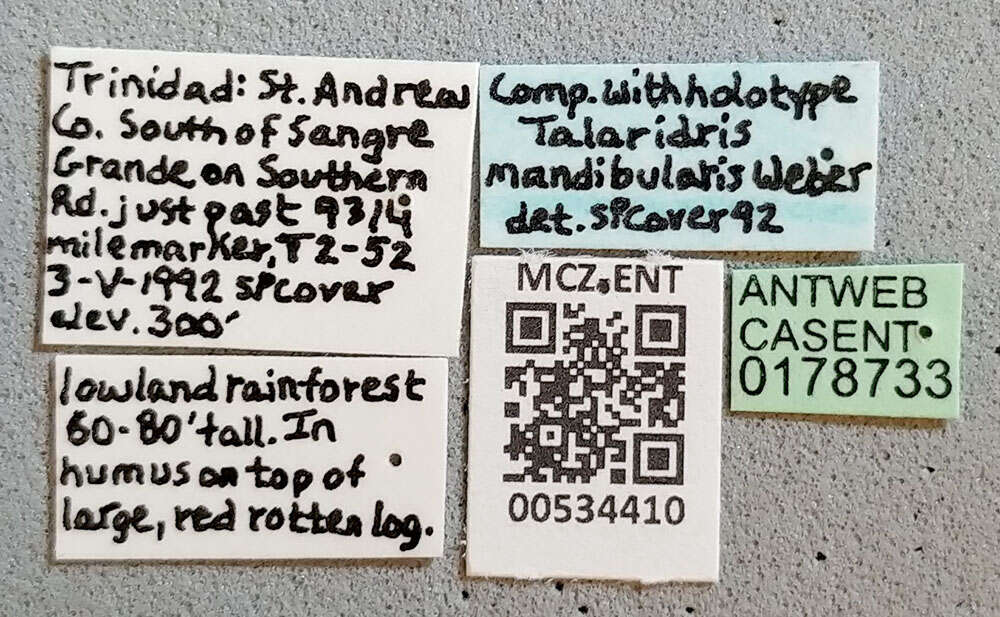 Trinidad: St. Andrew
Co. South of Sangre
Grande on Southern
Rd. just past 9 3/4
milemarker, T2-52
3-V-1992 SPCover
elev. 300'
lowland rainforest
60-80' tall. In
humus on top of
large, red rotten log.
Comp. with holotype
Talaridris
mandibularis Weber
det. SPCover 92
MCZ-ENT
00534410
ANTWEB
CASENT
0178733